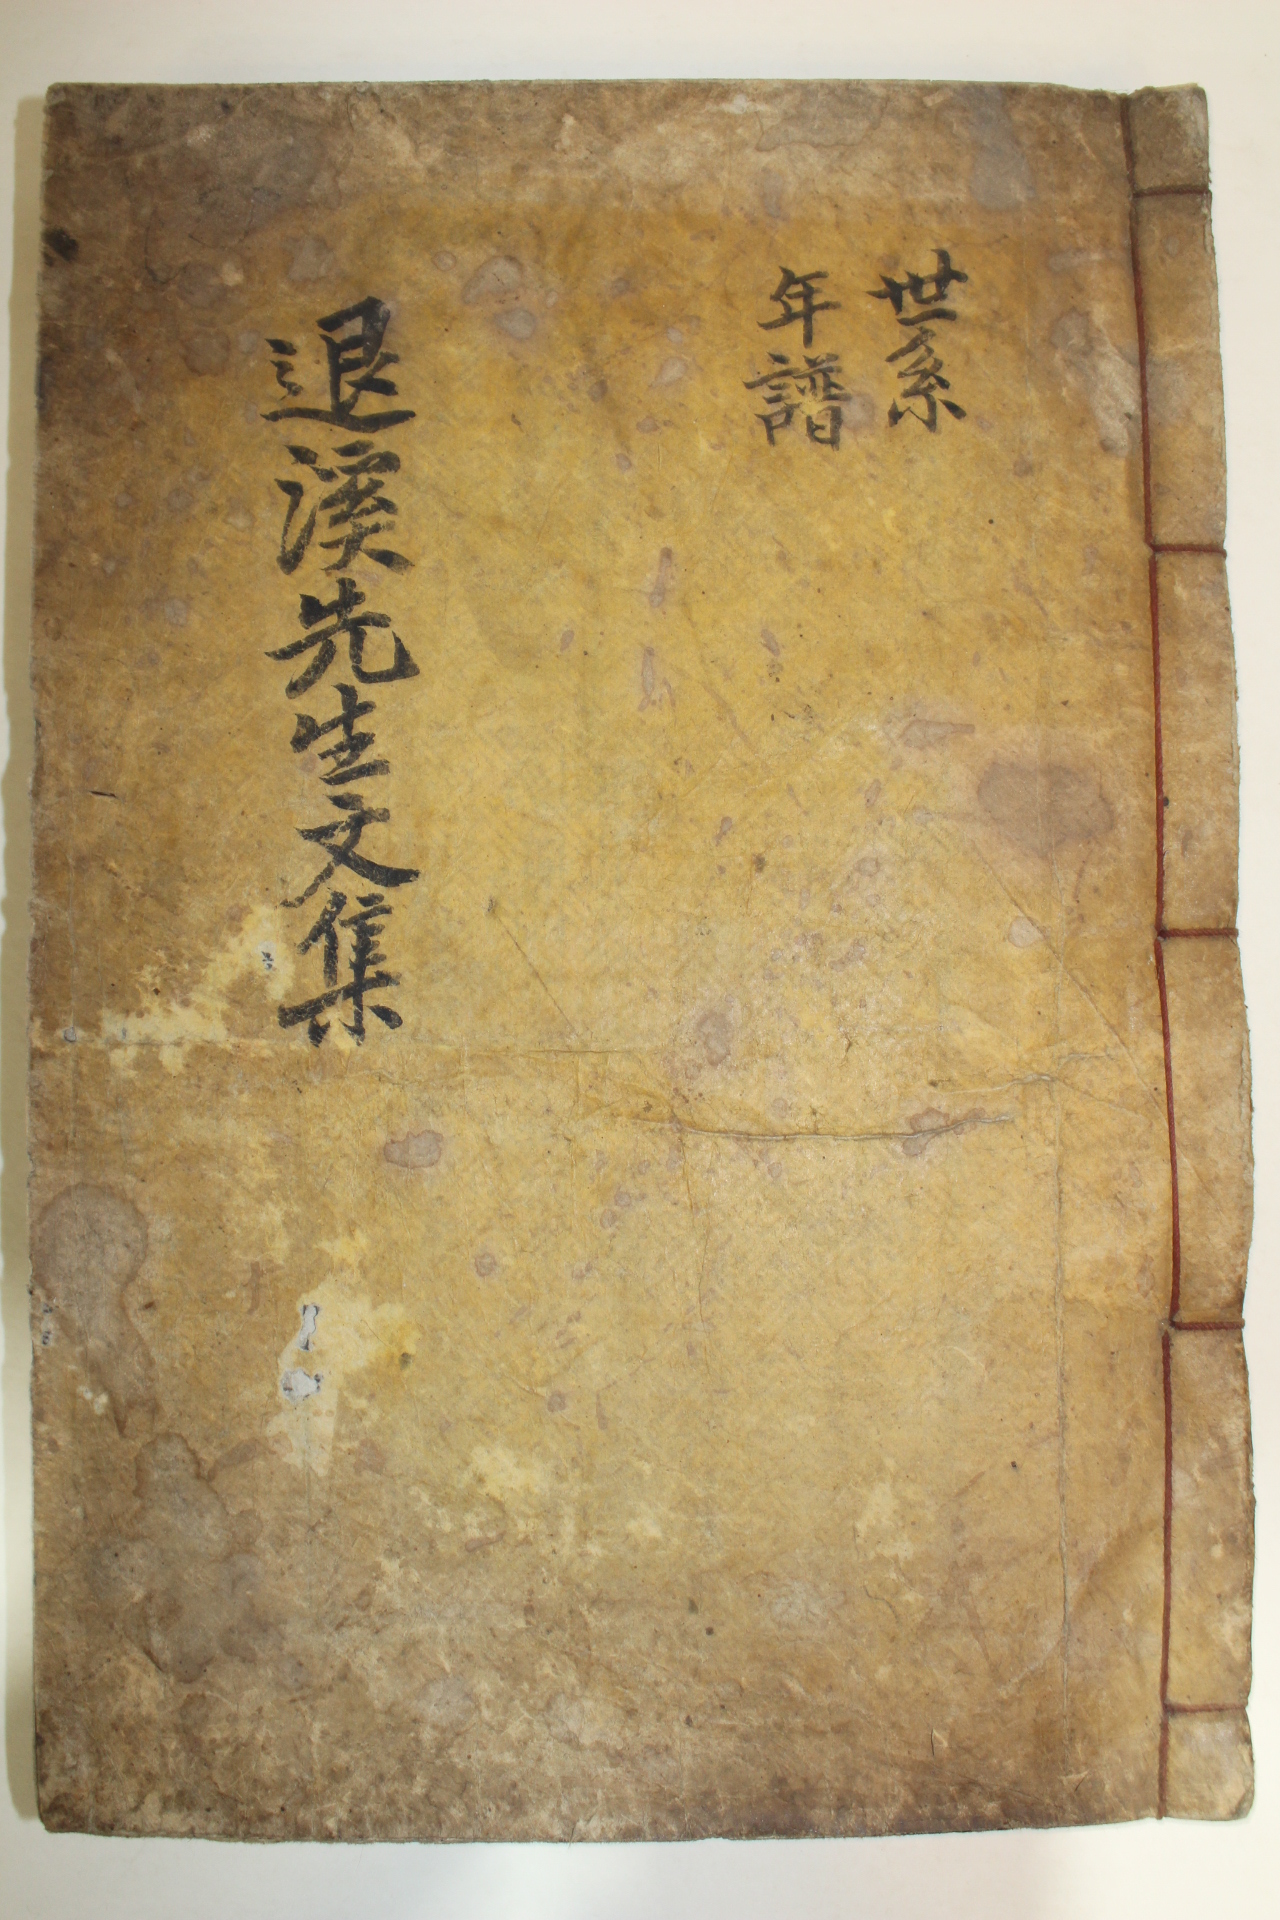 世系
年譜
退溪先生文集